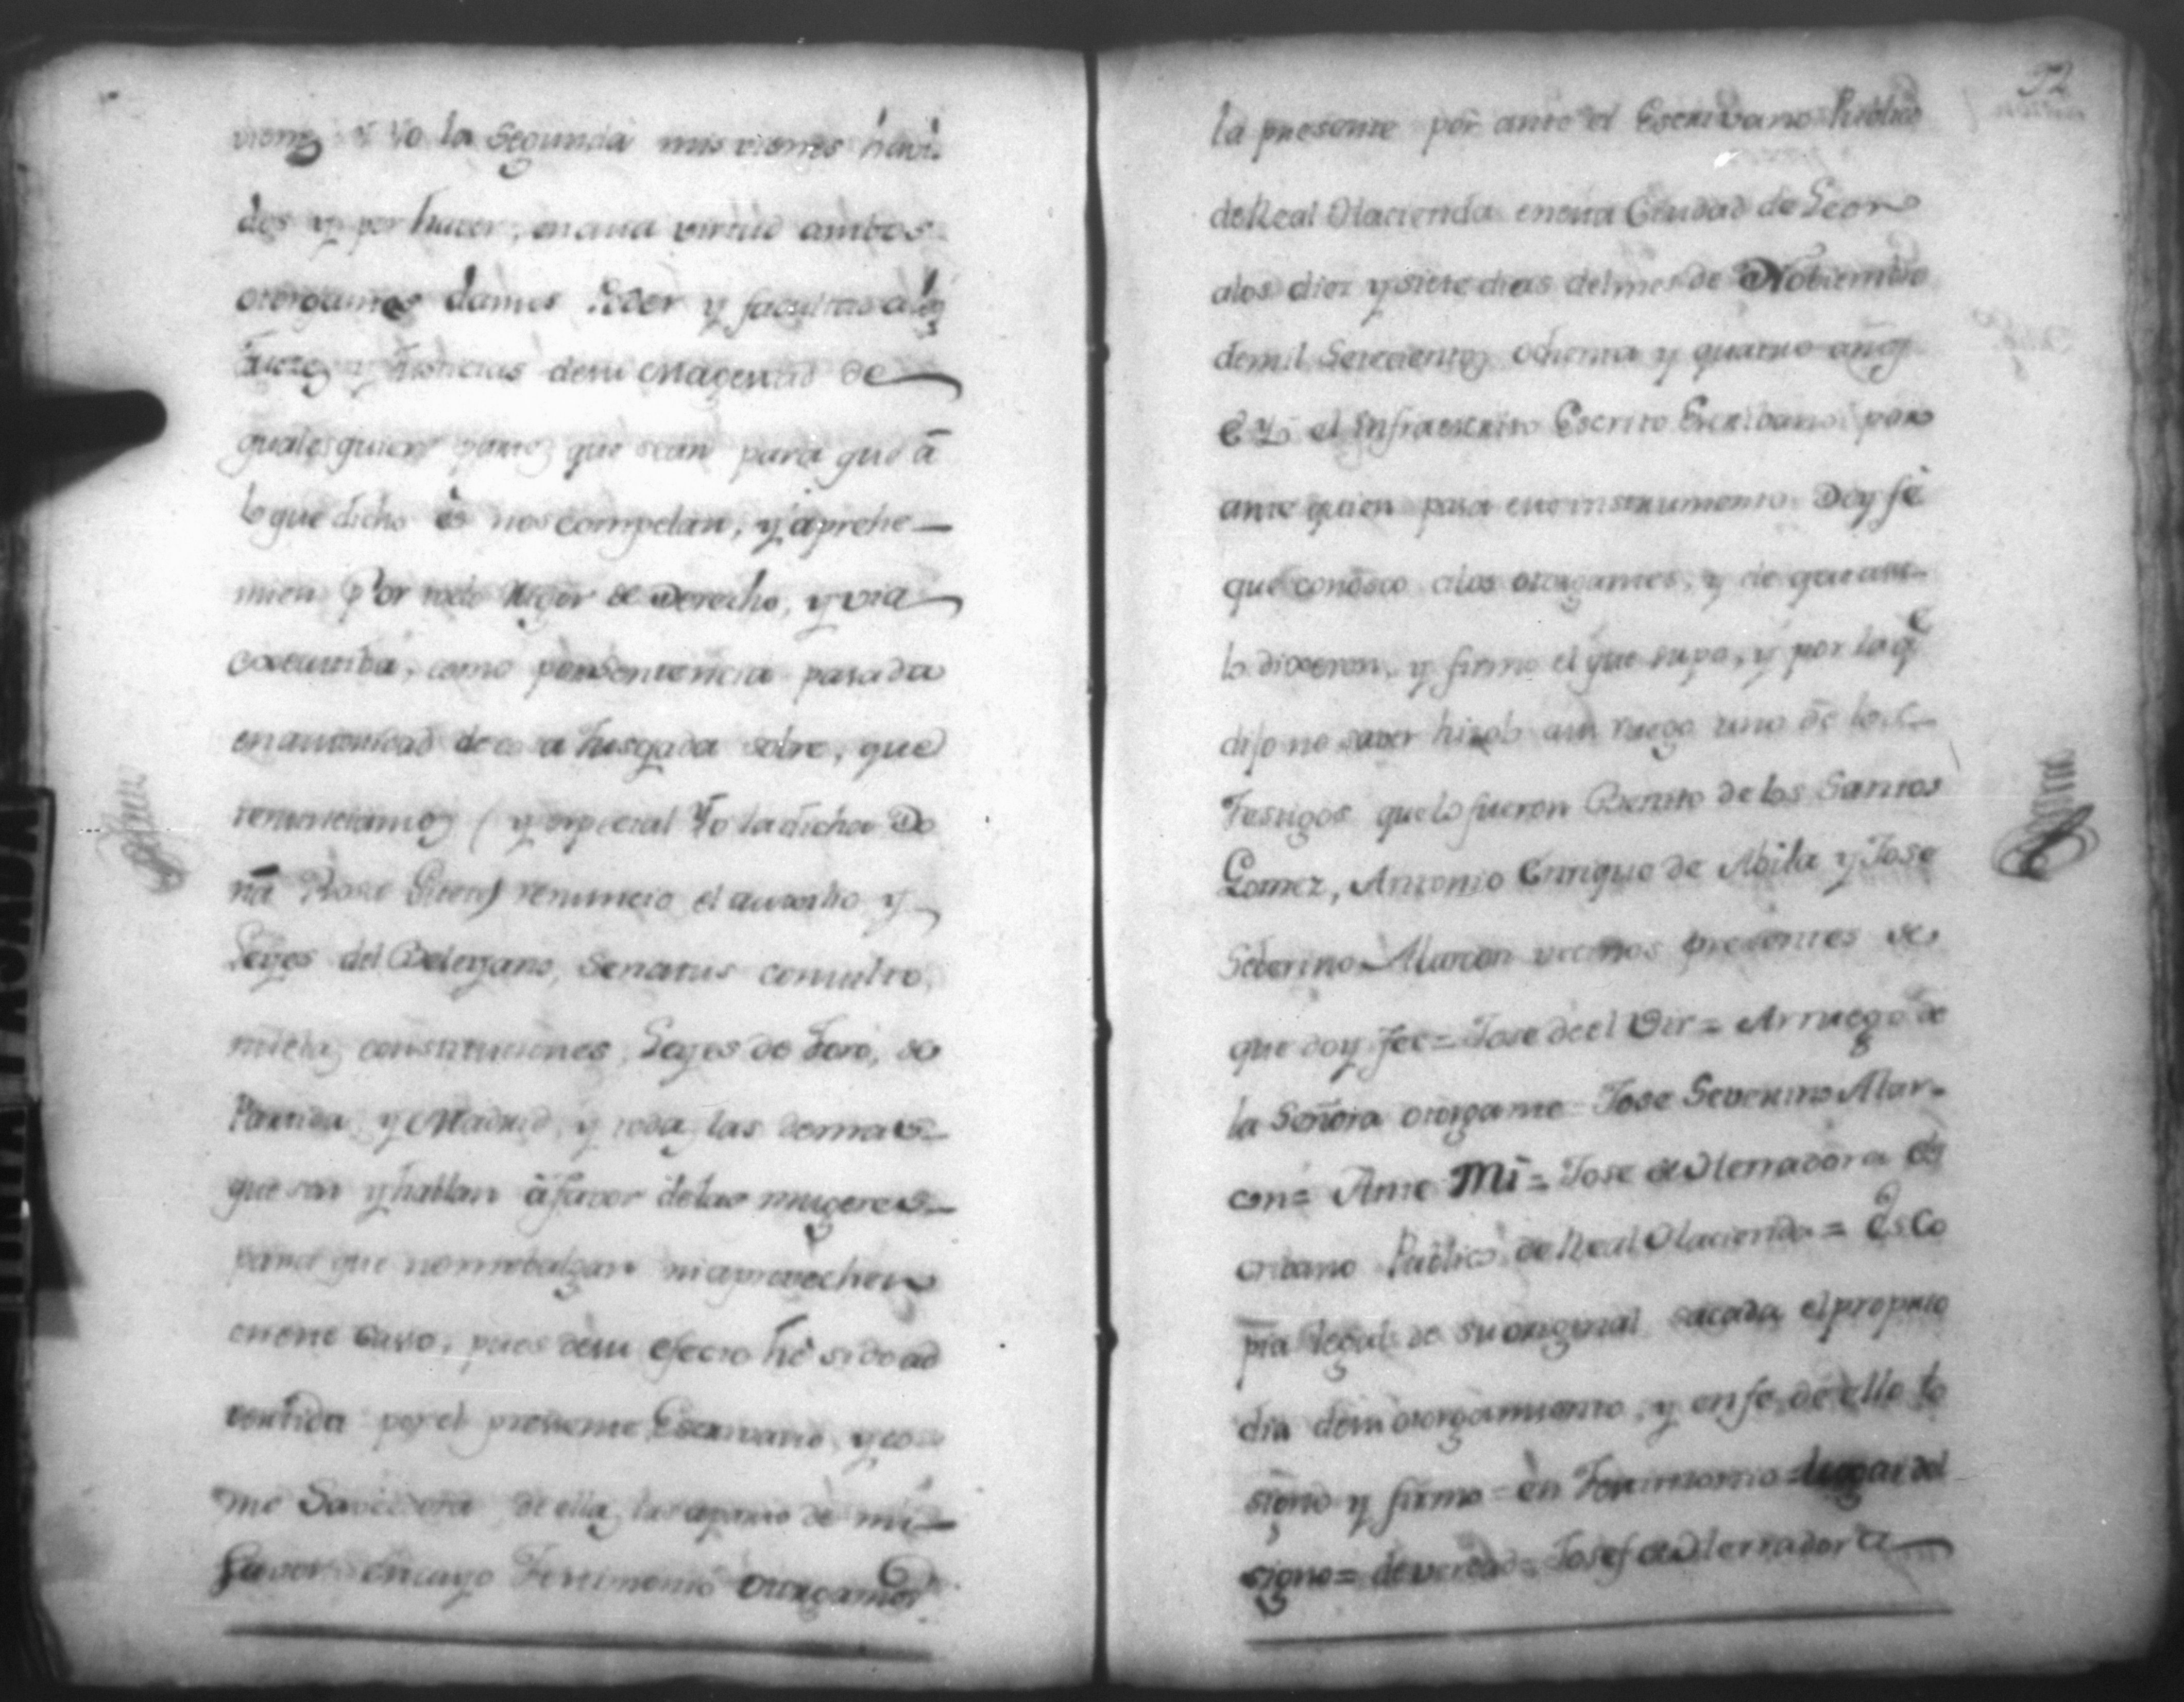 vienes è Yo la Segunda mis vienes havi
dos y por haver, en cuia virtud ambos
otorgantes damos Poder y facultad a los
Juezes y Justicias de su Magestad de
qualesquier partes que sean para que â
lo que dicho es nos compelan, y apre he
mien Por todo rigor de Derecho, y via
executiba, como por sentencia pasada
en autoridad de cosa Jusgada sobre, que
renunciamos (y especial Yo la dicha Do
ña Rosa) renuncio el auxilio y
Leyes del Beleyano, Senatus consulto,
nuebas constituciones, Leyes de Toro, de
Partida, y Madrid, y todas las demas
que son y hablan â favor de las mugeres
para que no me balgan ni aprovechen
en este caso, pues de su efecto hê sido ad
vertida por el presente Escrivano, y co
mo Savedora de ellas las aparto de mi
favor en cuyo Testimonio otorgamos
52
la presente por ante el Escrivano Publico
de Real Hacienda en esta Ciudad de Leon
a los diez y siete dias del mes de Nobiembre
de mil Setecientos ochenta y quatro años
E Yo el Infraescrito Escrito Escribano por
ante quien pasa este instrumento Doy fe
que conosco a los otorgantes, y de que asi
lo dixeron, y firmo el que supo, y por la qe
dijo no saver hizolo a su ruego uno de los
Testigos que lo fueron Benito de los Santos
Gomez, Antonio Enrique de Abila y Jose
Seberino Alarcon vecinos presentes de
que doy fee = Jose de el Vir = Arruego de
la Señora otorgante = Jose Severino Alar-
con = Ante Mi = Jose de Herradora Es
cribano Publico de Real Hacienda = Es Co
pia legal de su original sacada el proprio
dia de su otorgamiento, y en fe de ello lo
signo y firmo = en Testimonio = lugar del
signo = de verdad = Josef de Herradora